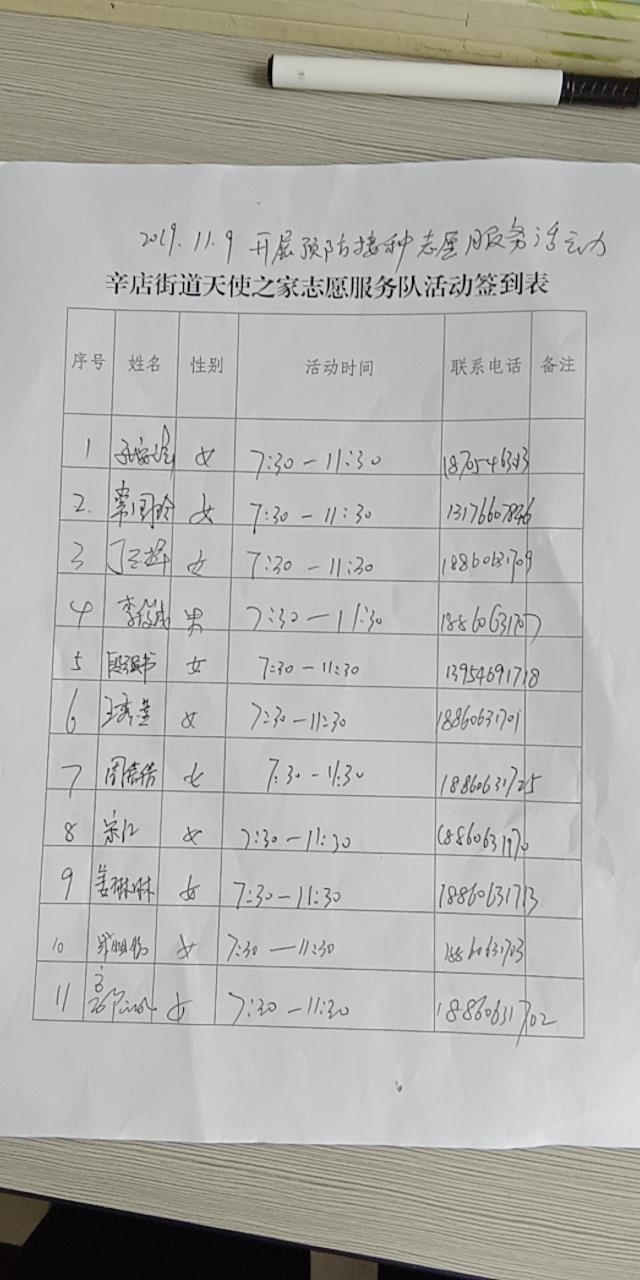 2019.11.9 开展预防接种志愿服务活动
辛店街道天使之家志愿服务队活动签到表
序号 姓名 性别 活动时间 联系电话 备注
1 女 7:30-11:30
2. 女 7:30-11:30 13176607846
3 女 7:30-11:30 18860631709
4 男 7:30-11:30 18860631707
5 女 7:30-11:30 13954691718
6 王秀莲 女 7:30-11:30 18860631701
7 女 7:30-11:30 18860631725
8 宋江 女 7:30-11:30
9 姜琳琳 女 7:30-11:30 18860631713
10 女 7:30-11:30 18860631703
11 女 7:30-11:30 18860631702